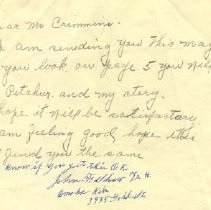 ear Mr Crimmins.
I am sending you this mag
you look on Page 5 you will
Pitcher and my story.
hope it will be satisfactory
am feeling good, hope this
find you the same
Know if you get this O.K.
John